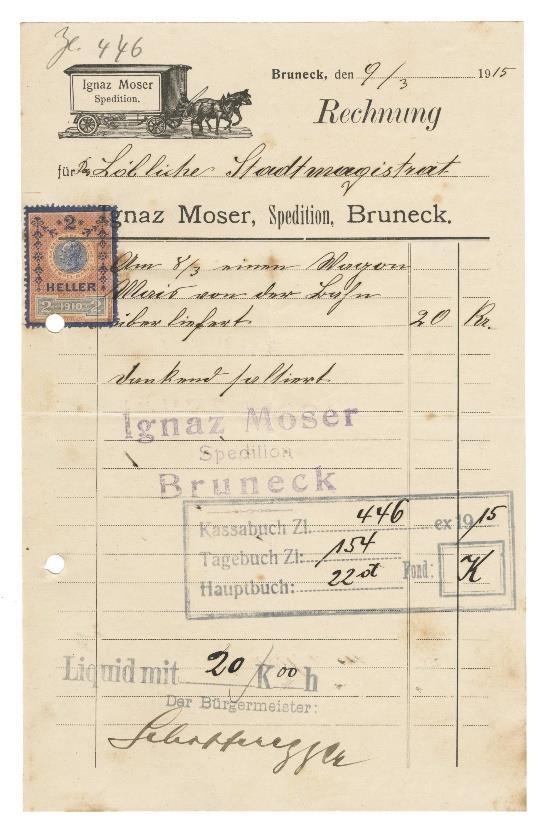 Zl. 446
Ignaz Moser
Spedition.
Bruneck, den 9/3 1915
Rechnung
für Löbliche Stadtmagistrat
Ignaz Moser, Spedition, Bruneck.
2
HELLER
2 1910 2
Am 8/3 einen Wagon
Mais von der Bahn
überliefert 20 Kr.
dankend saltiert
Ignaz Moser
Spedition
Bruneck
Kassabuch Zl. 446 ex 1915
Tagebuch Zl: 154
Hauptbuch: 22 Fond: K
Liquid mit 20 K 00 h
Der Bürgermeister: